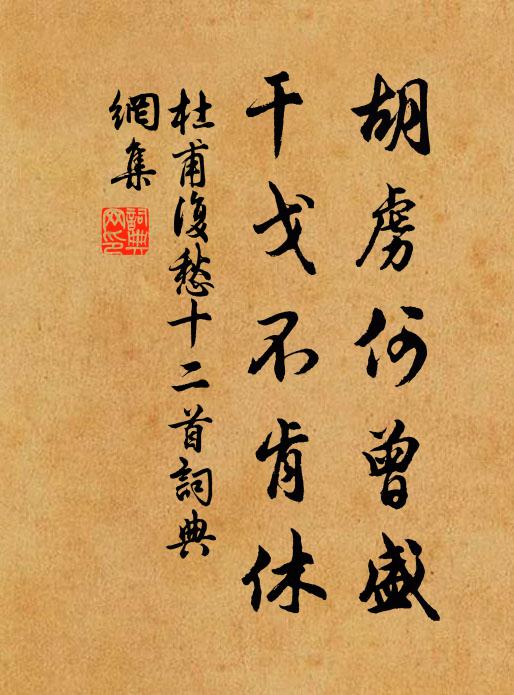 胡虜何曾盛
干戈不肯休
杜甫復愁十二首詞典
網集
詞典
网印